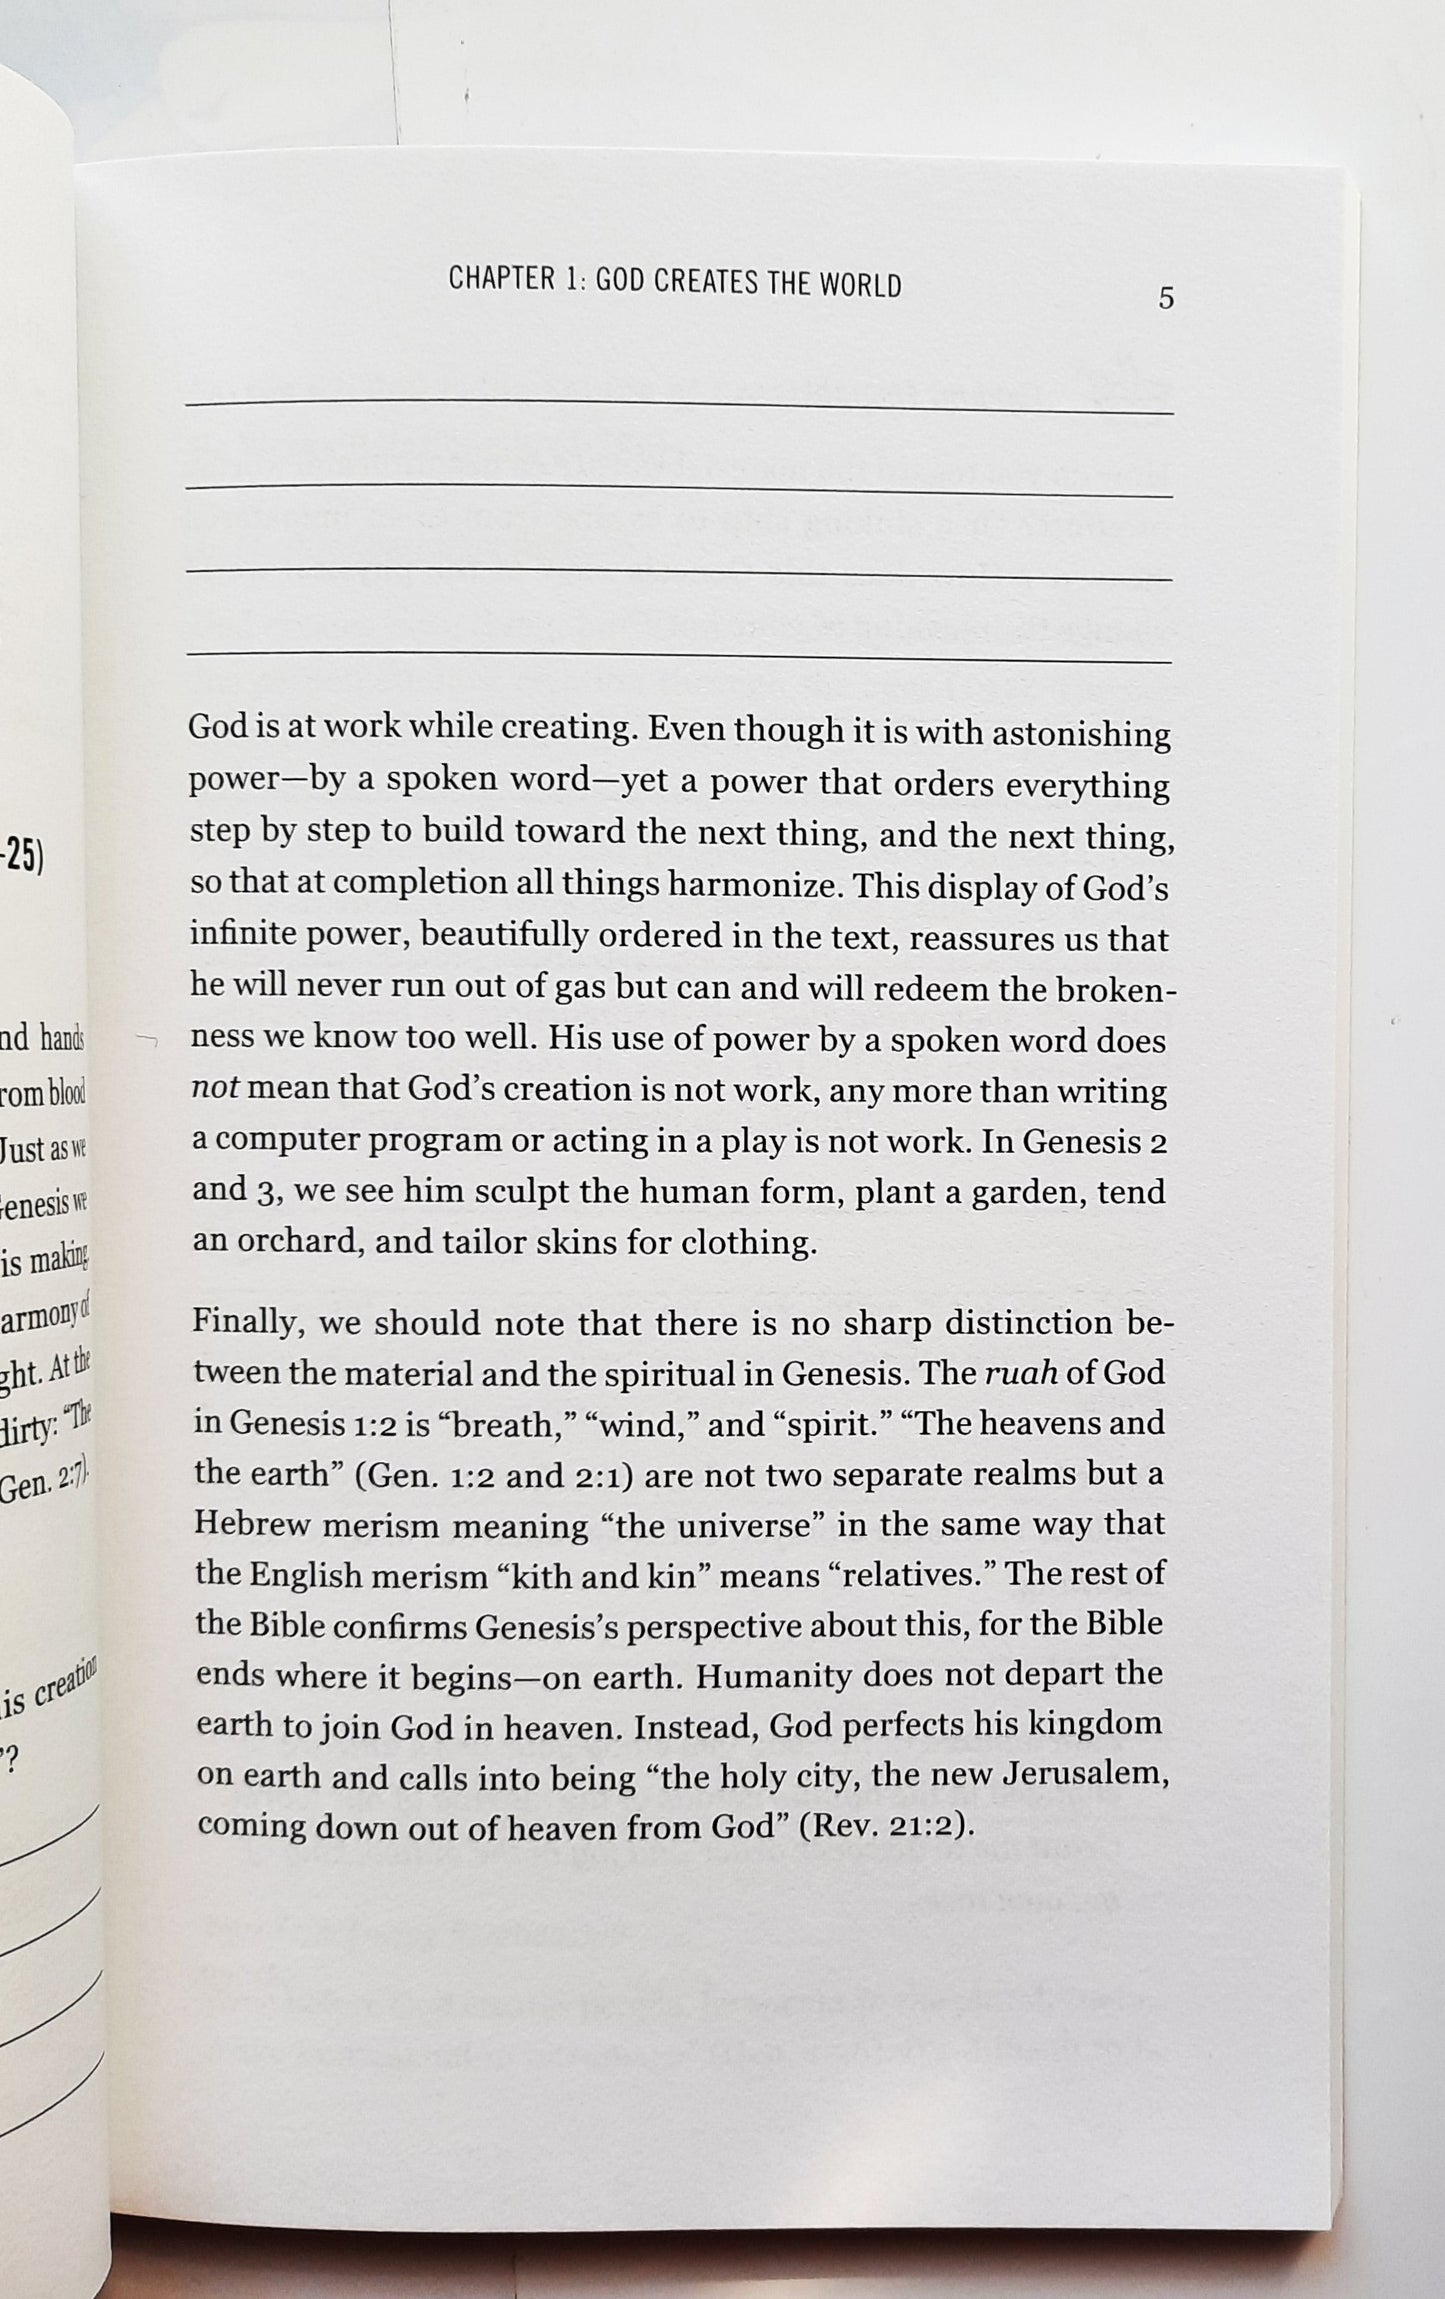 -25)
nd hands
rom blood
Just as we
Genesis we
is making
armony of
ght. At the
dirty: “The
Gen. 2:7).
is creation
”?
CHAPTER 1: GOD CREATES THE WORLD
5
God is at work while creating. Even though it is with astonishing
power—by a spoken word—yet a power that orders everything
step by step to build toward the next thing, and the next thing,
so that at completion all things harmonize. This display of God’s
infinite power, beautifully ordered in the text, reassures us that
he will never run out of gas but can and will redeem the broken-
ness we know too well. His use of power by a spoken word does
not mean that God’s creation is not work, any more than writing
a computer program or acting in a play is not work. In Genesis 2
and 3, we see him sculpt the human form, plant a garden, tend
an orchard, and tailor skins for clothing.
Finally, we should note that there is no sharp distinction be-
tween the material and the spiritual in Genesis. The ruah of God
in Genesis 1:2 is “breath,” “wind,” and “spirit.” “The heavens and
the earth” (Gen. 1:2 and 2:1) are not two separate realms but a
Hebrew merism meaning “the universe” in the same way that
the English merism “kith and kin” means “relatives.” The rest of
the Bible confirms Genesis’s perspective about this, for the Bible
ends where it begins—on earth. Humanity does not depart the
earth to join God in heaven. Instead, God perfects his kingdom
on earth and calls into being “the holy city, the new Jerusalem,
coming down out of heaven from God” (Rev. 21:2).